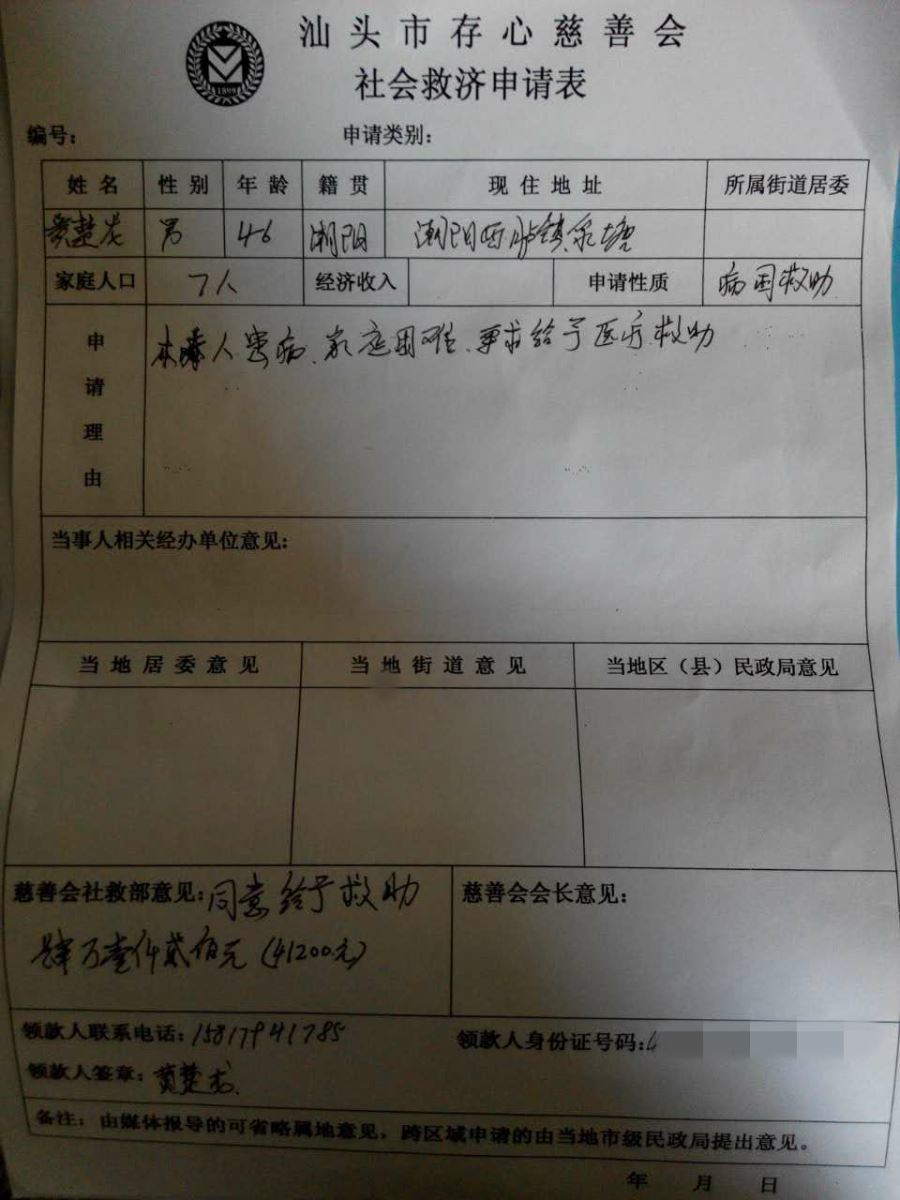 汕头市存心慈善会
1899
社会救济申请表
编号： 申请类别：
姓名 性别 年龄 籍贯 现住地址 所属街道居委
黄楚龙 男 46 潮阳 潮阳西胪镇泉塘
家庭人口 7人 经济收入 申请性质 病困救助
申请理由
本人患病、家庭困难、要求给予医疗救助
当事人相关经办单位意见：
当地居委意见 当地街道意见 当地区（县）民政局意见
慈善会社救部意见：同意给予救助 慈善会会长意见：
肆万壹仟贰佰元（41200元）
领款人联系电话：15817941785 领款人身份证号码：4
领款人签章：黄楚
备注：由媒体报导的可省略属地意见，跨区域申请的由当地市级民政局提出意见。
年 月 日